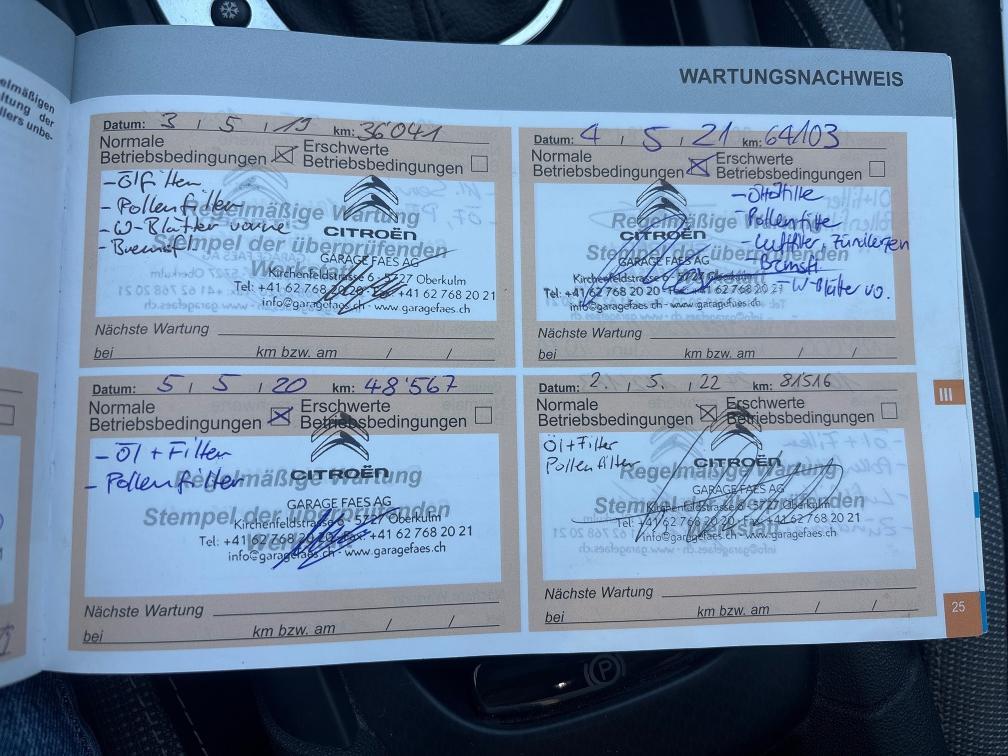 elmäßigen
ltung der
llers unbe-
WARTUNGSNACHWEIS
Datum: 3 / 5 / 19 km: 36'041
Normale Betriebsbedingungen Erschwerte Betriebsbedingungen
- Ölfilter
- Pollenfilter
- W-Blätter vorne
Regelmäßige Wartung
CITROËN
Stempel der überprüfenden
GARAGE FAES AG
Kirchenfeldstrasse 6 - 5727 Oberkulm
Tel: +41 62 768 20 20 - Fax: +41 62 768 20 21
info@garagefaes.ch - www.garagefaes.ch
Nächste Wartung
bei km bzw. am / /
Datum: 5 / 5 / 20 km: 48'567
Normale Betriebsbedingungen Erschwerte Betriebsbedingungen
- Öl + Filter
- Pollenfilter
Regelmäßige Wartung
CITROËN
GARAGE FAES AG
Stempel der überprüfenden
Kirchenfeldstrasse 6 - 5727 Oberkulm
Tel: +41 62 768 20 20 - Fax: +41 62 768 20 21
info@garagefaes.ch - www.garagefaes.ch
Nächste Wartung
bei km bzw. am / /
Datum: 4 / 5 / 21 km: 64'103
Normale Betriebsbedingungen Erschwerte Betriebsbedingungen
- Pollenfilter
- Luftfilter, Zündkerzen
- W-Blätter vo.
Regelmäßige Wartung
CITROËN
Stempel der überprüfenden
GARAGE FAES AG
Kirchenfeldstrasse 6 - 5727 Oberkulm
Tel: +41 62 768 20 20 - Fax: +41 62 768 20 21
info@garagefaes.ch - www.garagefaes.ch
Nächste Wartung
bei km bzw. am / /
Datum: 2. / 5. / 22 km: 81'516
Normale Betriebsbedingungen Erschwerte Betriebsbedingungen
Öl + Filter
Pollenfilter
Regelmäßige Wartung
CITROËN
GARAGE FAES AG
Stempel der überprüfenden
Kirchenfeldstrasse 6 - 5727 Oberkulm
Tel: +41 62 768 20 20 - Fax: +41 62 768 20 21
info@garagefaes.ch - www.garagefaes.ch
Nächste Wartung
bei km bzw. am / /
III
25
P